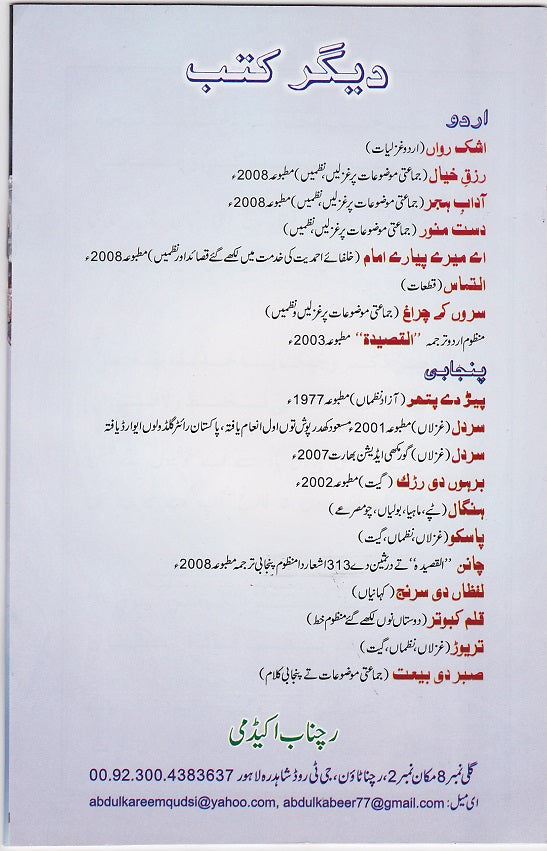 دیگر کتب
اردو
اشک رواں (اردو غزلیات)
رزقِ خیال (جماعتی موضوعات پر غزلیں، نظمیں) مطبوعہ 2008ء
آدابِ ہجر (جماعتی موضوعات پر غزلیں، نظمیں) مطبوعہ 2008ء
دست منور (جماعتی موضوعات پر غزلیں، نظمیں)
اے میرے پیارے امام (خلفائے احمدیت کی خدمت میں لکھے گئے قصائد اور نظمیں) مطبوعہ 2008ء
التماس (قطعات)
سروں کے چراغ (جماعتی موضوعات پر غزلیں و نظمیں)
منظوم اردو ترجمہ "القصیدۃ" مطبوعہ 2003ء
پنجابی
پیڑ دے پتھر (آزاد نظماں) مطبوعہ 1977ء
سردل (غزلاں) مطبوعہ 2001ء مسعود کھدر پوش توں اول انعام یافتہ، پاکستان رائٹر گلڈ ولوں ایوارڈ یافتہ
سردل (غزلاں) گورمکھی ایڈیشن بھارت 2007ء
برہوں دی رڑک (گیت) مطبوعہ 2002ء
ہنگال (ٹپے، ماہیا، بولیاں، چومصرعے)
پاسکو (غزلاں، نظماں، گیت)
چانن "القصیدہ" تے درثمین دے 313 اشعار دا منظوم پنجابی ترجمہ مطبوعہ 2008ء
لفظاں دی سرنج (کہانیاں)
قلم کبوتر (دوستاں نوں لکھے گئے منظوم خط)
تریوڑ (غزلاں، نظماں، گیت)
صبر دی بیعت (جماعتی موضوعات تے پنجابی کلام)
رچناب اکیڈمی
گلی نمبر 8 مکان نمبر 2، رچنا ٹاؤن، جی ٹی روڈ شاہدرہ لاہور 00.92.300.4383637
ای میل: abdulkareemqudsi@yahoo.com, abdulkabeer77@gmail.com